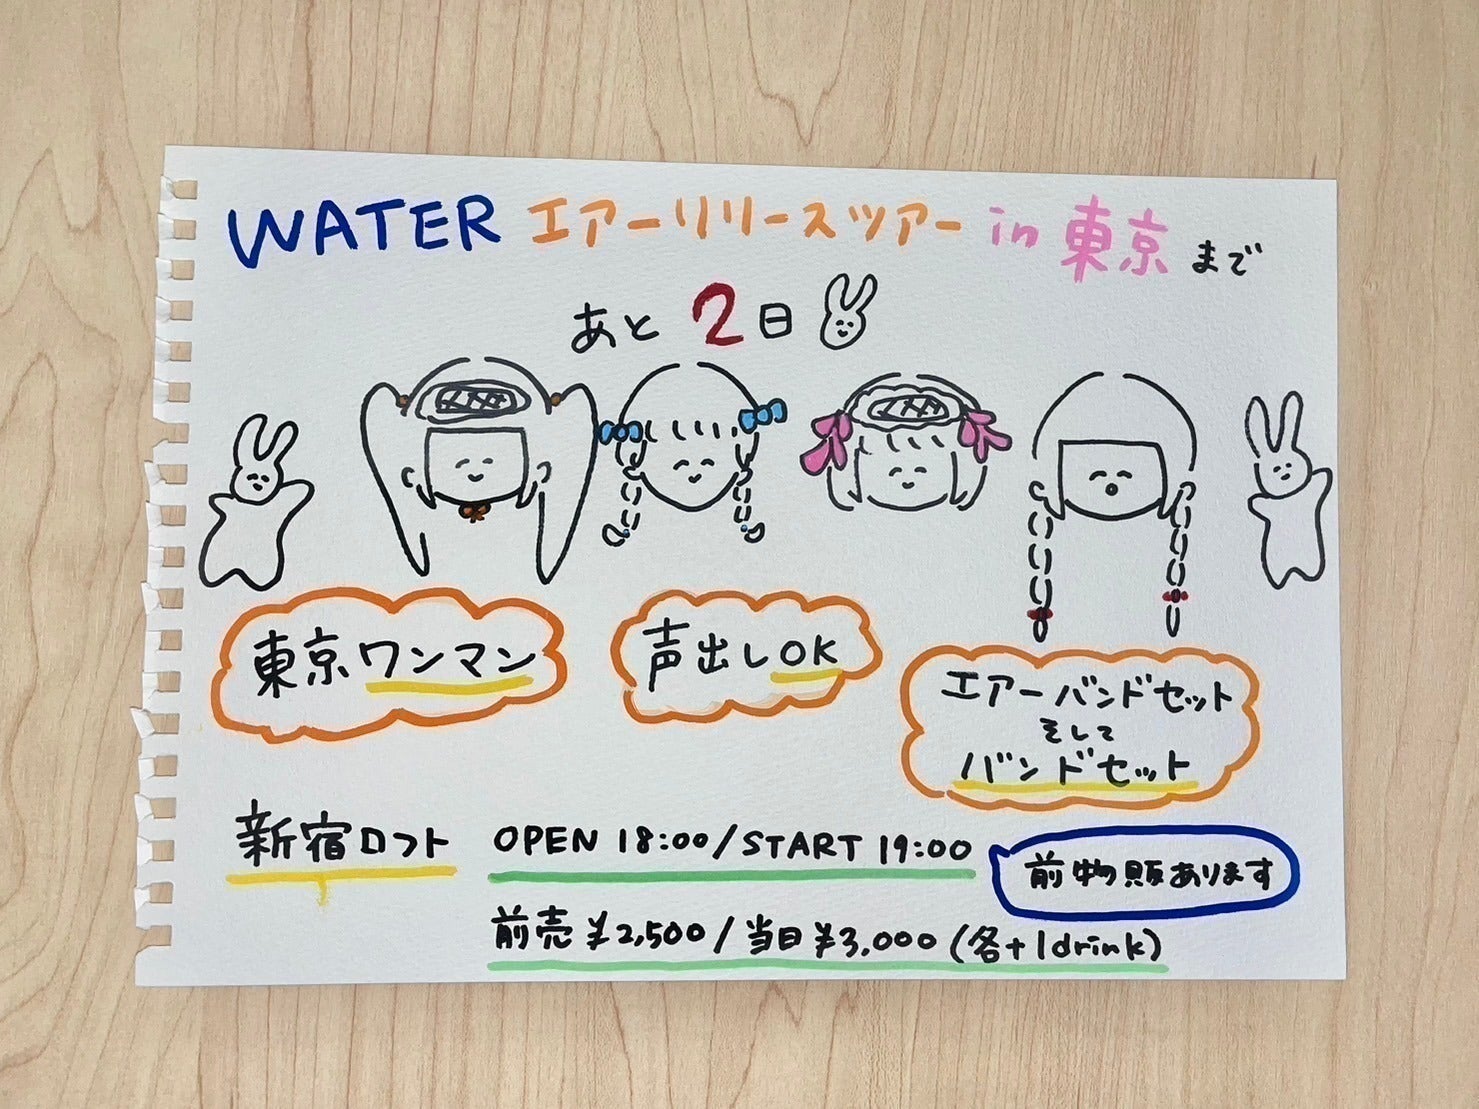 WATER エアーリリースツアー in 東京 まで
あと 2日
東京ワンマン
声出しOK
エアーバンドセット
そして
バンドセット
新宿ロフト
OPEN 18:00/START 19:00
前物販あります
前売¥2,500/当日¥3,000(各+1drink)